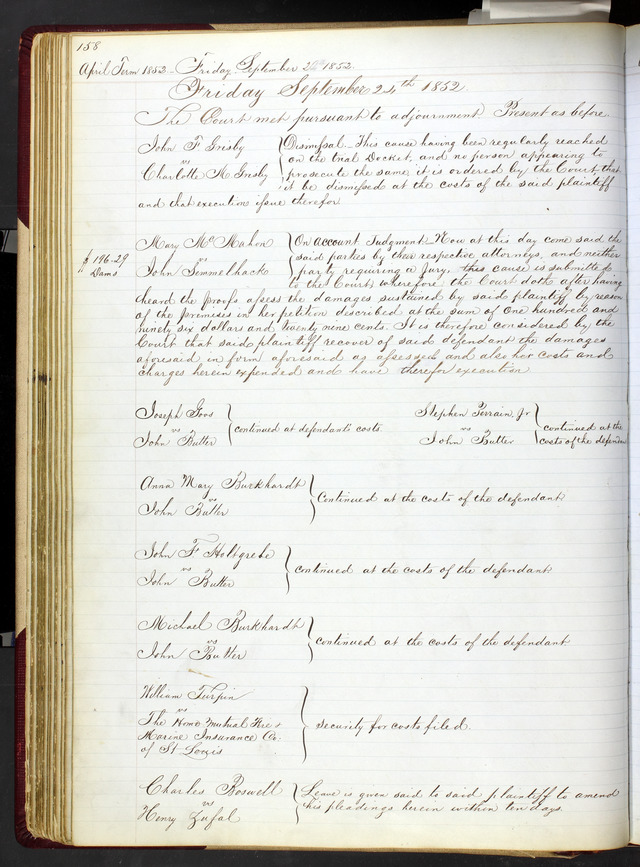 158
April Term 1852 Friday September 24th 1852
Friday September 24th 1852
The Court met pursuant to adjournment Present as before
John T Grisby
vs
Charlotte A Grisby
Dismissal - This cause having been regularly reached
on the trial Docket, and no person appearing to
prosecute the same it is ordered by the Court that
it be dismissed at the costs of the said plaintiff
and that execution issue therefor
$196-29
Dams
Mary McMahon
vs
John Semmelhack
On account Judgment. Now at this day come said the
said parties by their respective attorneys, and neither
party requiring a jury, this cause is submitted
to the Court, wherefore the Court doth after having
heard the proofs assess the damages sustained by said plaintiff by reason
of the premises in her petition described at the sum of One hundred and
ninety six dollars and twenty nine cents. It is therefore considered by the
Court that said plaintiff recover of said defendant the damages
aforesaid in form aforesaid as assessed and also her costs and
charges herein expended and have therefor execution
Joseph Goos
vs
John Butter
continued at defendants costs.
Stephen Perrain, Jr
vs
John Butter
continued at the
costs of the defendan
Anna Mary Burkhardt
vs
John Butter
Continued at the costs of the defendant.
John F Holtgrebe
vs
John Butter
continued at the costs of the defendant.
Michael Burkhardt
vs
John Butter
continued at the costs of the defendant.
William Turpin
vs
The Home Mutual Fire &
Marine Insurance Co.
of St Louis
security for costs filed.
Charles Roswell
vs
Henry Zufal
Leave is given said to said plaintiff to amend
his pleadings herein within ten days.